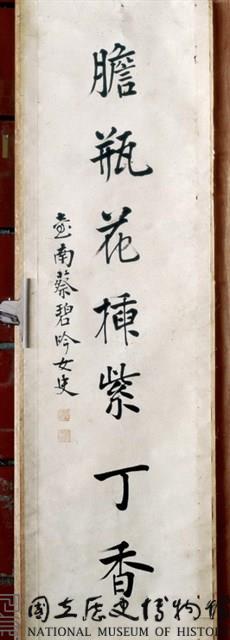 膽瓶花插紫丁香
臺南蔡碧吟女史
國立歷史博物館
NATIONAL MUSEUM OF HISTOR